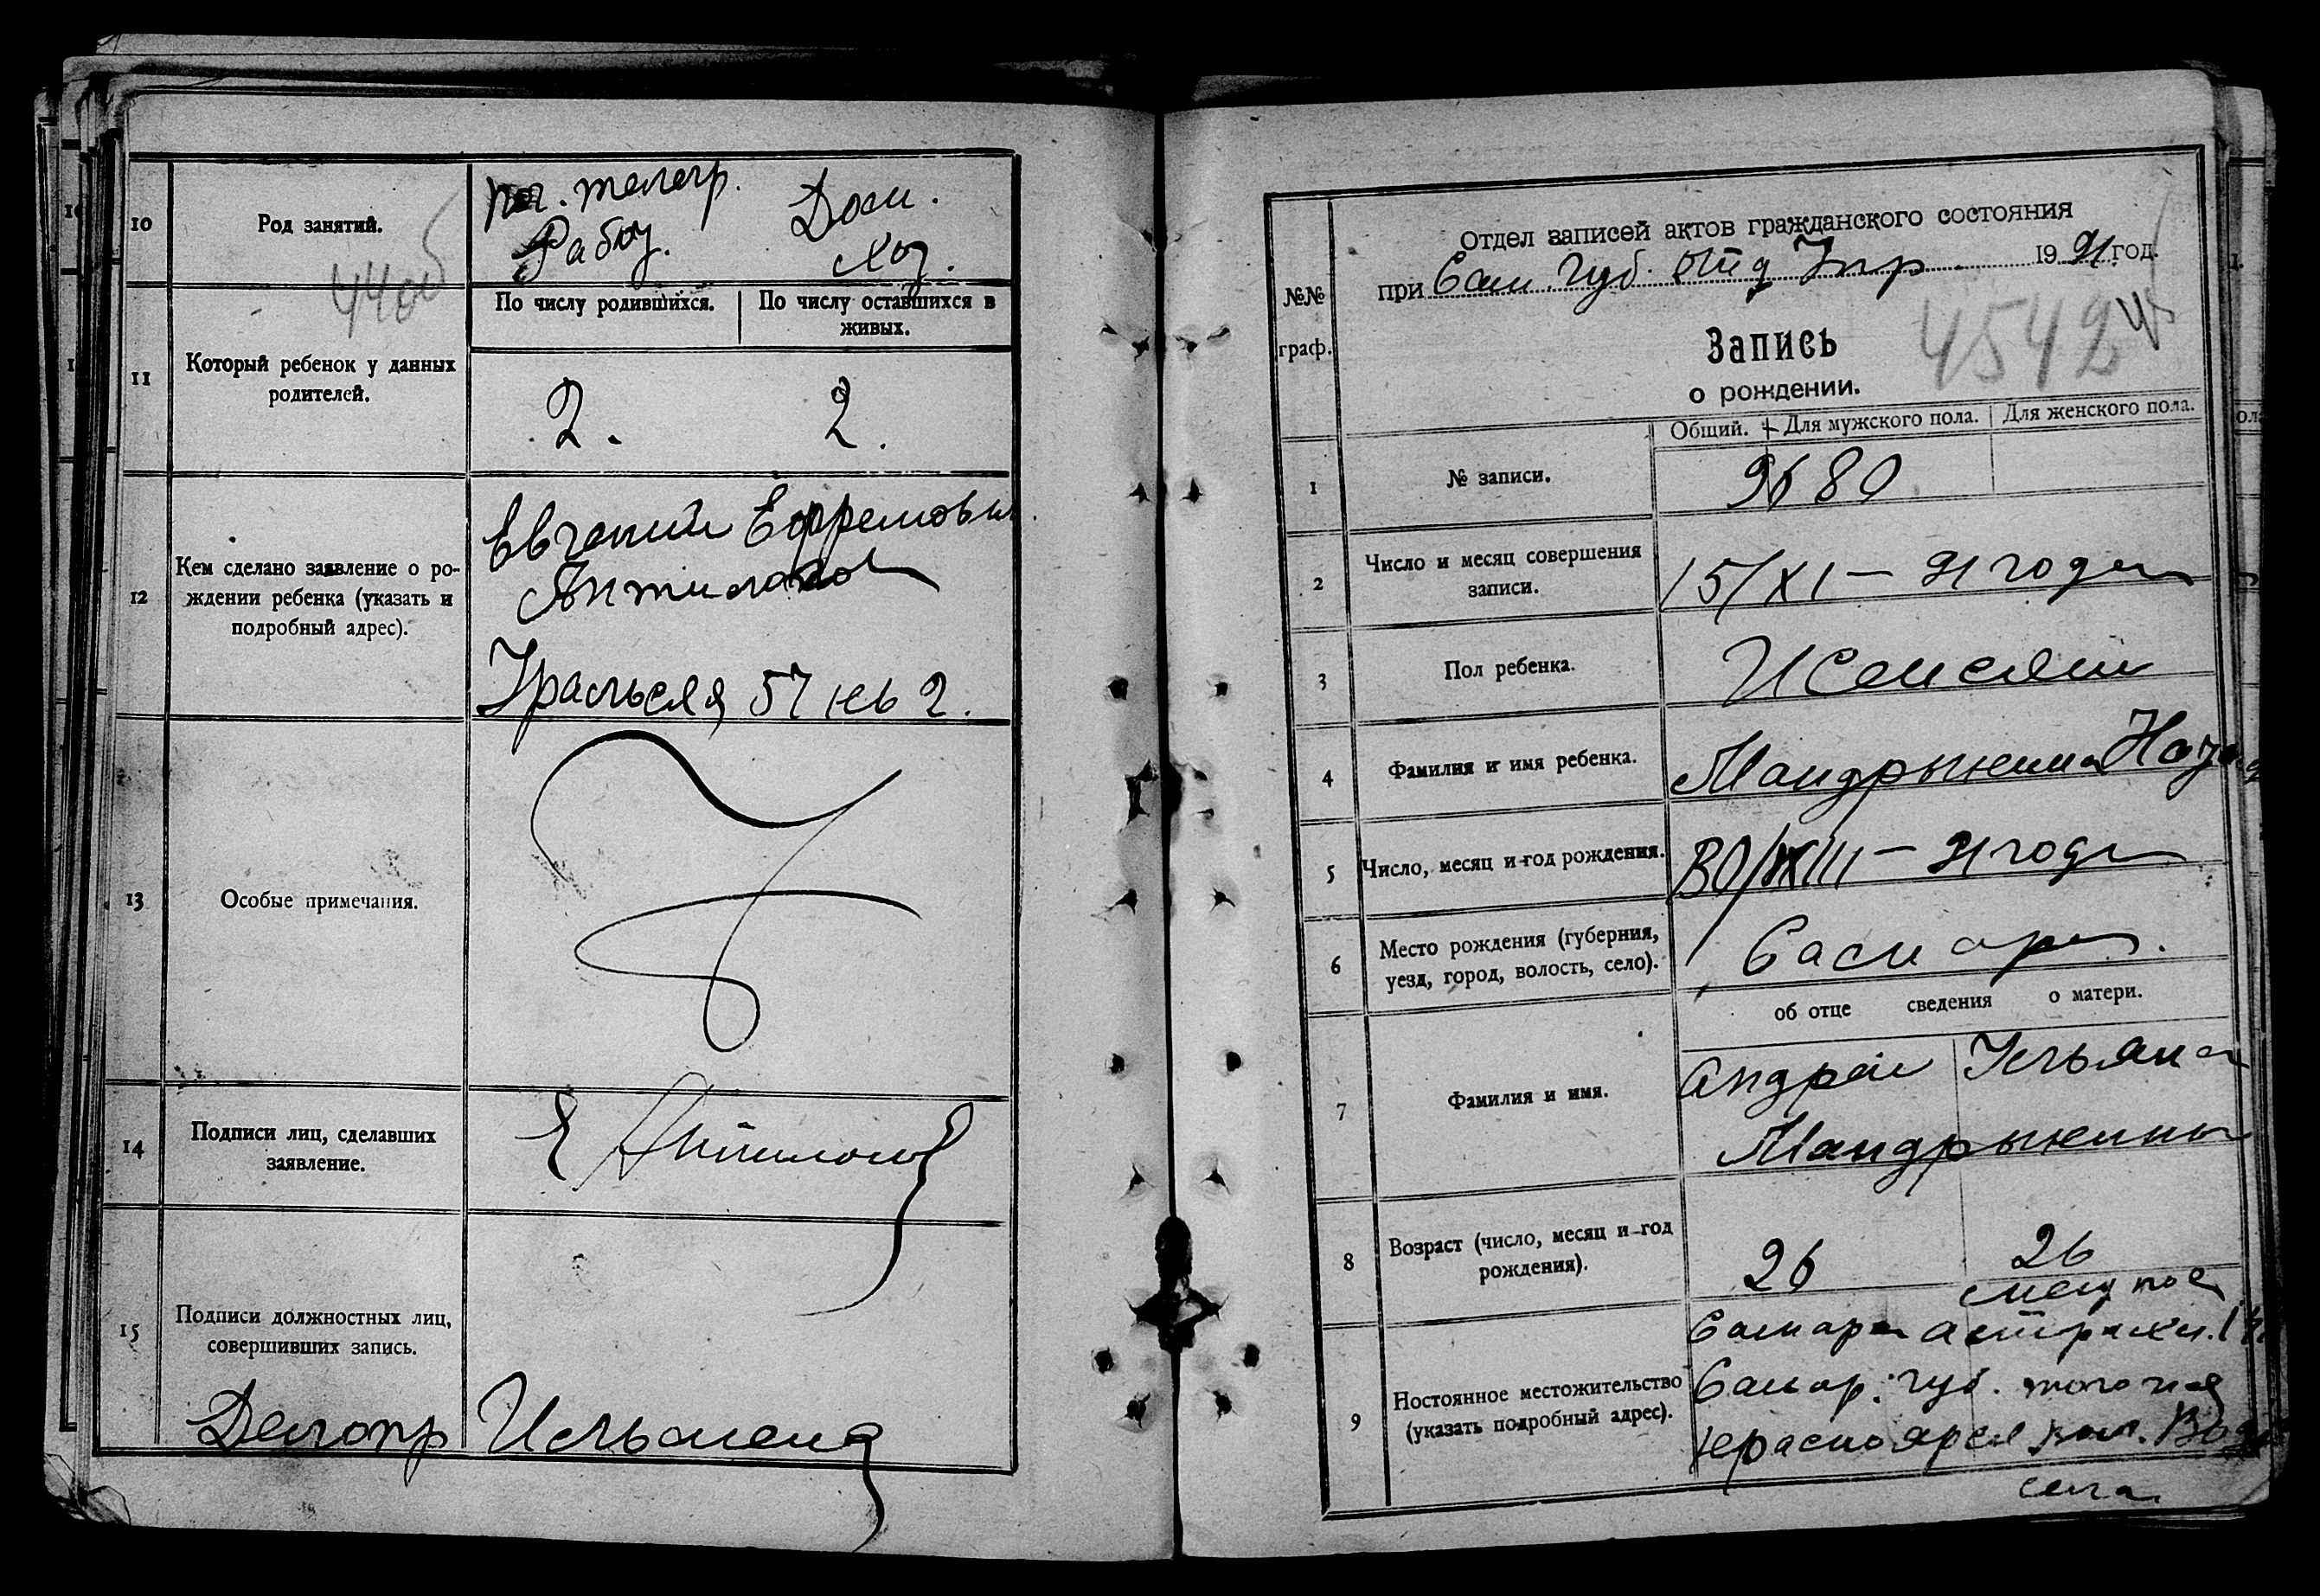 10
Род занятий.
телегр.
Рабоч.
Дом.
хоз.
11
Который ребенок у данных
родителей.
По числу родившихся.
По числу оставшихся в
живых.
2.
2.
12
Кем сделано заявление о ро-
ждении ребенка (указать и
подробный адрес).
Евгений Ефремович
Уральская 57 кв 2.
13
Особые примечания.
14
Подписи лиц, сделавших
заявление.
15
Подписи должностных лиц,
совершивших запись.
Делопр
№№
граф.
Отдел записей актов гражданского состояния
при Сам. Губ. Отд Упр. 1921 год.
Запись
4542
о рождении.
Общий.
Для мужского пола.
Для женского пола.
1
№ записи.
9680
2
Число и месяц совершения
записи.
15/XI – 21 года
3
Пол ребенка.
Женский
4
Фамилия и имя ребенка.
Мандрыкина
5
Число, месяц и год рождения.
21 года
6
Место рождения (губерния,
уезд, город, волость, село).
Самара.
об отце сведения о матери.
7
Фамилия и имя.
Андрей Ульяна
Мандрыкины
8
Возраст (число, месяц и год
рождения).
26
26
9
Постоянное местожительство
(указать подробный адрес).
Самара
Самар. губ.
Красноярск вол.
села